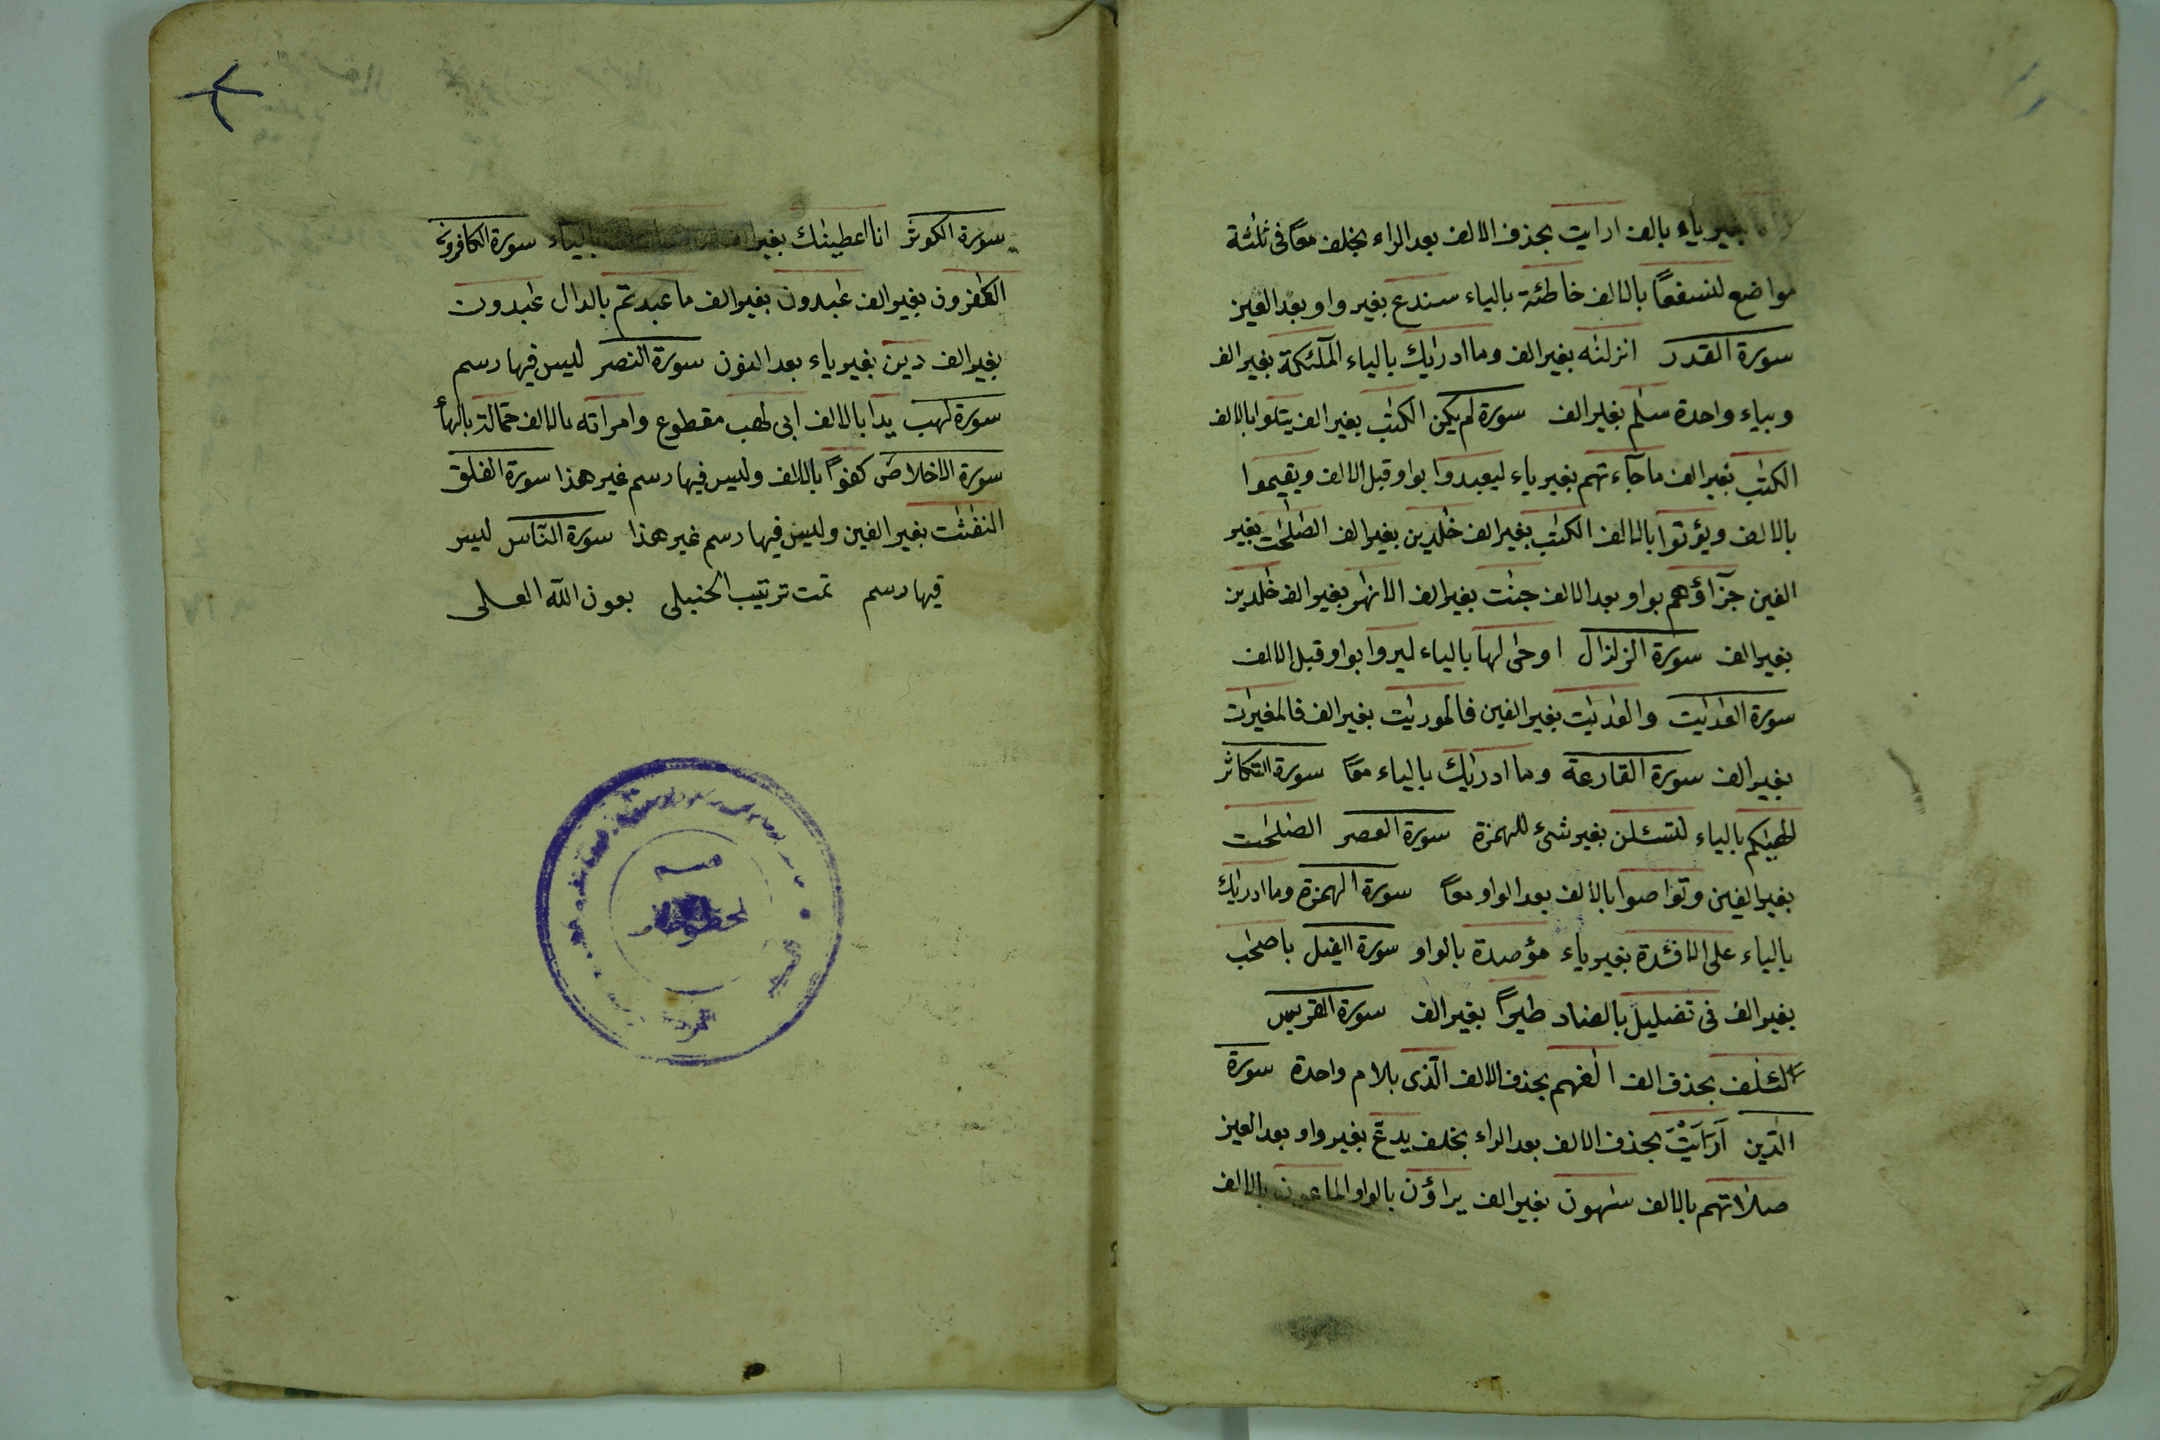 بغير ياء بالف ارايت بحذف الالف بعد الراء بخلف معًا فى ثلثة
مواضع لنسفعًا بالالف خاطئة بالياء سندع بغير واو بعد العين
سورة القدر انزلنٰه بغير الف وما ادريٰك بالياء الملٰئكة بغير الف
وبياء واحدة سلٰم بغير الف سورة لم يكن الكتٰب بغير الف يتلوا بالالف
الكتٰب بغير الف ما جآءتهم بغير ياء ليعبدوا بواو قبل الالف ويقيموا
بالالف ويؤتوا بالالف الكتٰب بغير الف خٰلدين بغير الف الصٰلحٰت بغير
الفين جزآؤهم بواو بعد الالف جنٰت بغير الف الانهٰر بغير الف خٰلدين
بغير الف سورة الزلزال اوحىٰ لها بالياء ليروا بواو قبل الالف
سورة العٰديٰت والعٰديٰت بغير الفين فالموريٰت بغير الف فالمغيرٰت
بغير الف سورة القارعة وما ادريٰك بالياء معًا سورة التكاثر
الهيٰكم بالياء لتسئلن بغير شئ للهمزة سورة العصر الصٰلحٰت
بغير الفين وتواصوا بالالف بعد الواو معًا سورة الهمزة وما ادريٰك
بالياء على الافئدة بغير ياء مؤصدة بالواو سورة الفيل باصحٰب
بغير الف فى تضليل بالضاد طيرًا بغير الف سورة القريس
لئلٰف بحذف الف الٰفهم بحذف الالف الذى بلام واحدة سورة
الدّين اَرَاَيْتَ بحذف الالف بعد الراء بخلف يدعّ بغير واو بعد العين
صلاتهم بالالف سٰهون بغير الف يراؤن بالواو الماعون بالالف
سورة الكوثر انا اعطينٰك بغير الف بالياء سورة الكافرون
الكٰفرون بغير الف عٰبدون بغير الف ما عبدتم بالدال عٰبدون
بغير الف دين بغير ياء بعد النون سورة النصر ليس فيها رسم
سورة لهب يدا بالالف ابى لهب مقطوع وامراته بالالف حمّالة بالهأ
سورة الاخلاص كفوًا بالالف وليس فيها رسم غير هذا سورة الفلق
النفٰثٰت بغير الفين وليس فيها رسم غير هذا سورة النّاس ليس
فيها رسم تمت ترتيب الحنبلى بعون الله العلى
قسم